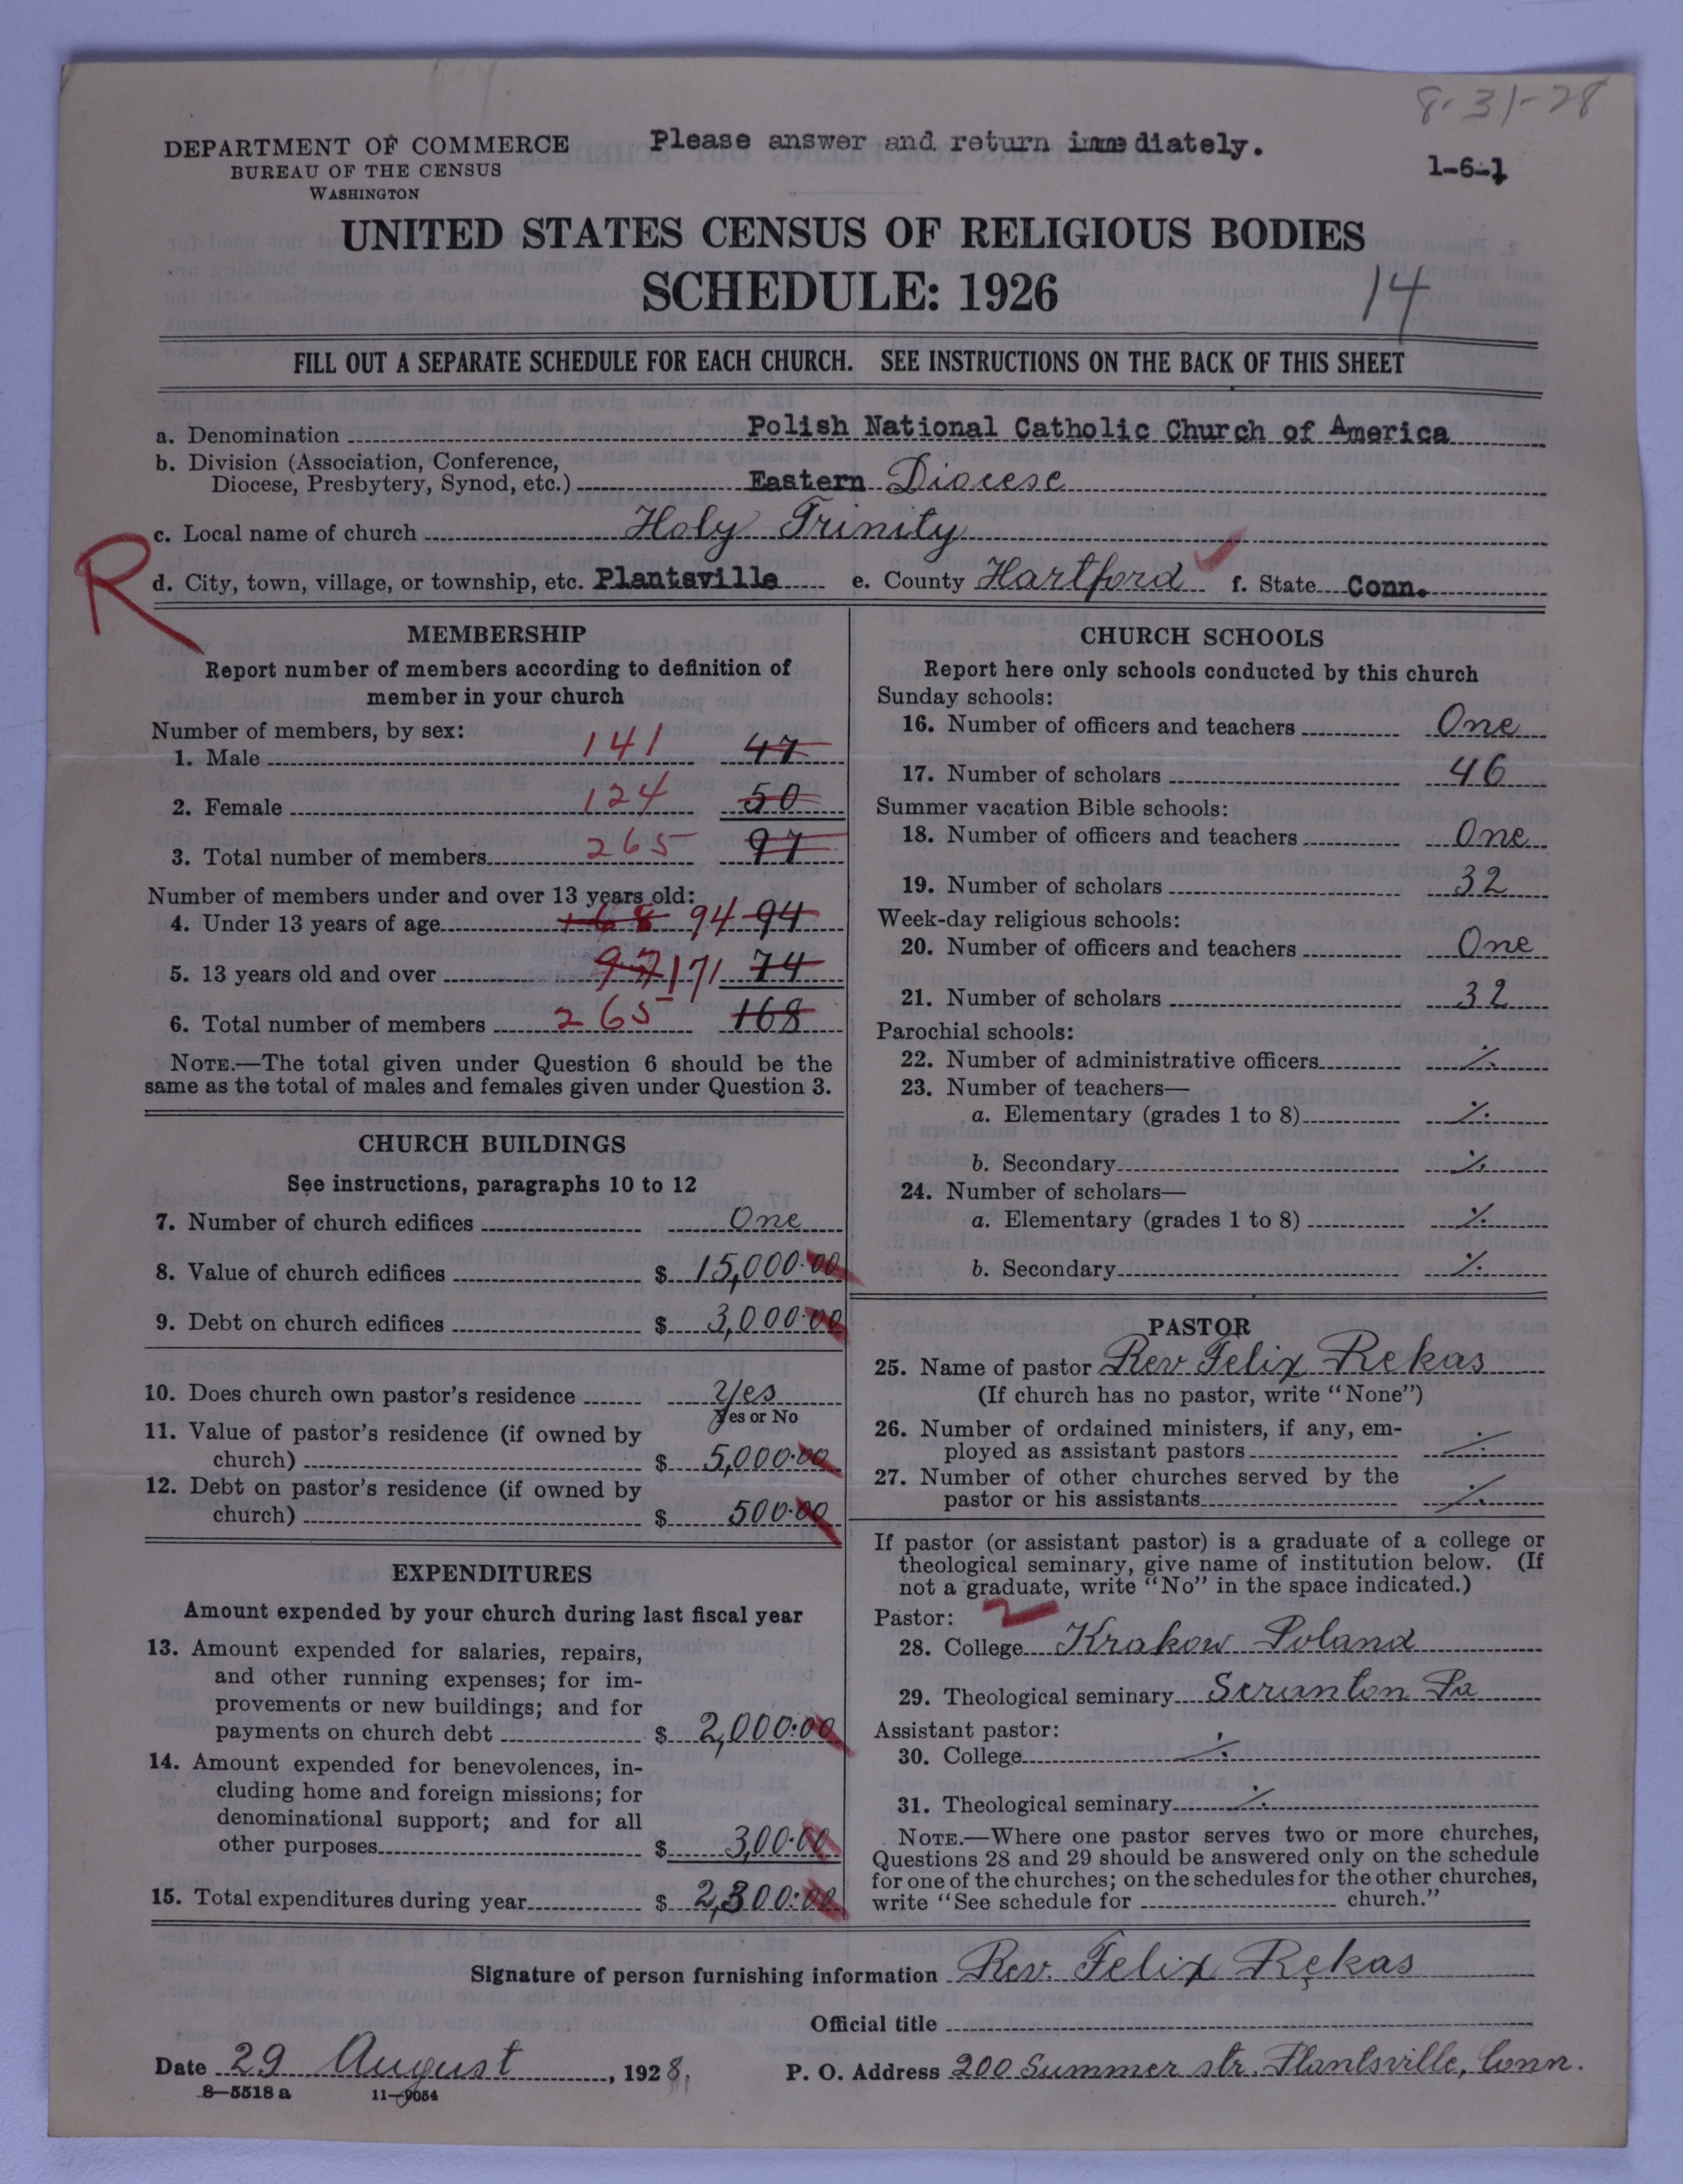 8-31-28
DEPARTMENT OF COMMERCE
BUREAU OF THE CENSUS
WASHINGTON
Please answer and return immediately.
1-6-1
UNITED STATES CENSUS OF RELIGIOUS BODIES
SCHEDULE: 1926
14
FILL OUT A SEPARATE SCHEDULE FOR EACH CHURCH. SEE INSTRUCTIONS ON THE BACK OF THIS SHEET
a. Denomination Polish National Catholic Church of America
b. Division (Association, Conference,
Diocese, Presbytery, Synod, etc.) Eastern Diocese
c. Local name of church Holy Trinity
R
d. City, town, village, or township, etc. Plantsville e. County Hartford f. State Conn.
MEMBERSHIP
Report number of members according to definition of
member in your church
Number of members, by sex:
1. Male 141 47
2. Female 124 50
3. Total number of members 265 97
Number of members under and over 13 years old:
4. Under 13 years of age 168 94 94
5. 13 years old and over 97 171 74
6. Total number of members 265 168
NOTE.—The total given under Question 6 should be the
same as the total of males and females given under Question 3.
CHURCH BUILDINGS
See instructions, paragraphs 10 to 12
7. Number of church edifices One
8. Value of church edifices $ 15,000.00
9. Debt on church edifices $ 3,000.00
10. Does church own pastor's residence Yes
Yes or No
11. Value of pastor's residence (if owned by
church) $ 5,000.00
12. Debt on pastor's residence (if owned by
church) $ 500.00
EXPENDITURES
Amount expended by your church during last fiscal year
13. Amount expended for salaries, repairs,
and other running expenses; for im-
provements or new buildings; and for
payments on church debt $ 2,000.00
14. Amount expended for benevolences, in-
cluding home and foreign missions; for
denominational support; and for all
other purposes $ 300.00
15. Total expenditures during year $ 2,300.00
CHURCH SCHOOLS
Report here only schools conducted by this church
Sunday schools:
16. Number of officers and teachers One
17. Number of scholars 46
Summer vacation Bible schools:
18. Number of officers and teachers One
19. Number of scholars 32
Week-day religious schools:
20. Number of officers and teachers One
21. Number of scholars 32
Parochial schools:
22. Number of administrative officers ⁒
23. Number of teachers—
a. Elementary (grades 1 to 8) ⁒
b. Secondary ⁒
24. Number of scholars—
a. Elementary (grades 1 to 8) ⁒
b. Secondary ⁒
PASTOR
25. Name of pastor Rev. Felix Rekas
(If church has no pastor, write "None")
26. Number of ordained ministers, if any, em-
ployed as assistant pastors ⁒
27. Number of other churches served by the
pastor or his assistants ⁒
If pastor (or assistant pastor) is a graduate of a college or
theological seminary, give name of institution below. (If
not a graduate, write "No" in the space indicated.)
Pastor: 2
28. College Krakow Poland
29. Theological seminary Scranton Pa
Assistant pastor:
30. College ⁒
31. Theological seminary ⁒
NOTE.—Where one pastor serves two or more churches,
Questions 28 and 29 should be answered only on the schedule
for one of the churches; on the schedules for the other churches,
write "See schedule for church."
Signature of person furnishing information Rev. Felix Rękas
Official title
Date 29 August, 1928. P. O. Address 200 Summer str. Plantsville, Conn.
8—5518 a 11—9054